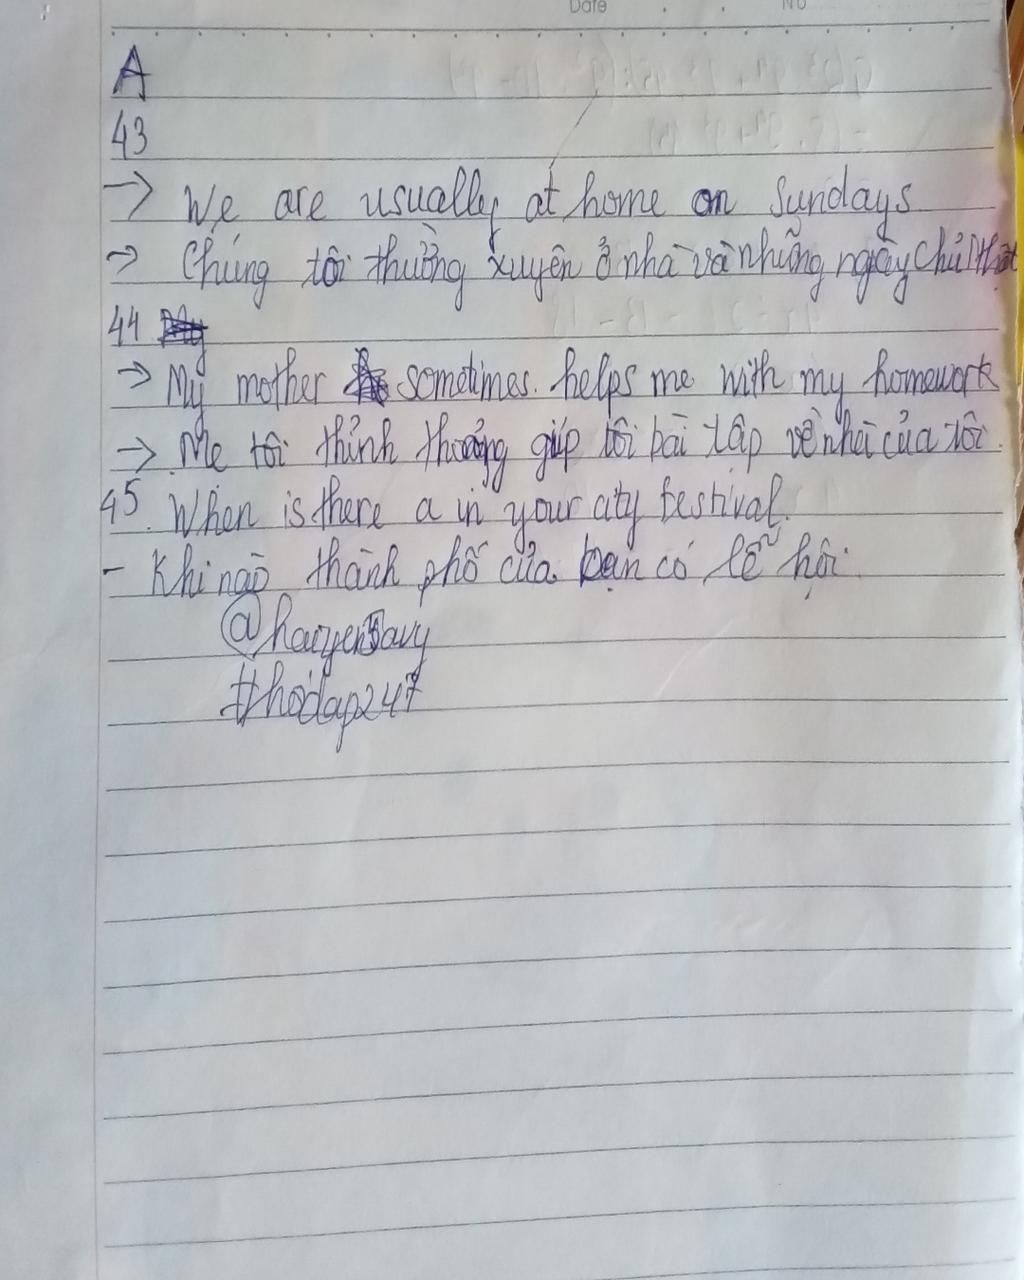 Date No
A
43
→ We are usually at home on Sundays
→ Chúng tôi thường xuyên ở nhà và những ngày chủ nhật
44
→ My mother sometimes. helps me with my homework
→ Mẹ tôi thỉnh thoảng giúp tôi bài tập về nhà của tôi.
45. When is there a in your city festival.
- Khi nào thành phố của bạn có lễ hội.
@haiyen5avy
#hoidap247